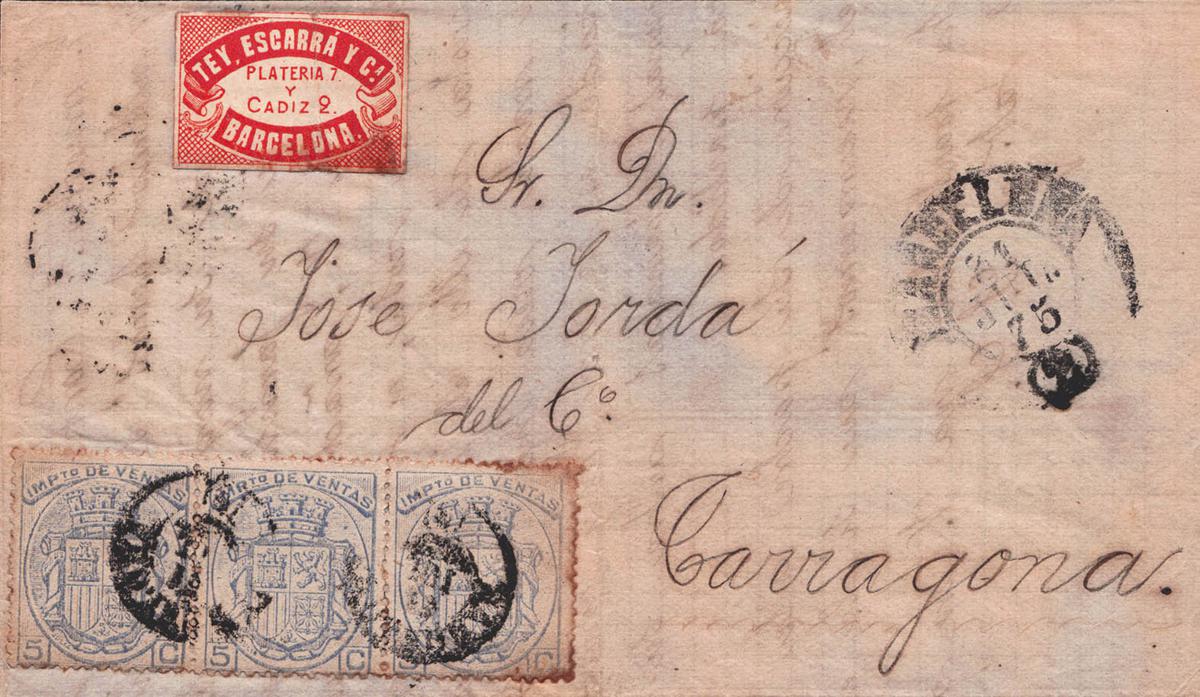 TEY, ESCARRÁ Y Cª
PLATERIA 7.
Y
CADIZ 2.
BARCELONA.
Sr. Dn.
Jose Jordá
del Cº.
Tarragona.
JUL.
75
IMPTO DE VENTAS
5 C
IMPTO DE VENTAS
5 C
IMPTO DE VENTAS
5 C